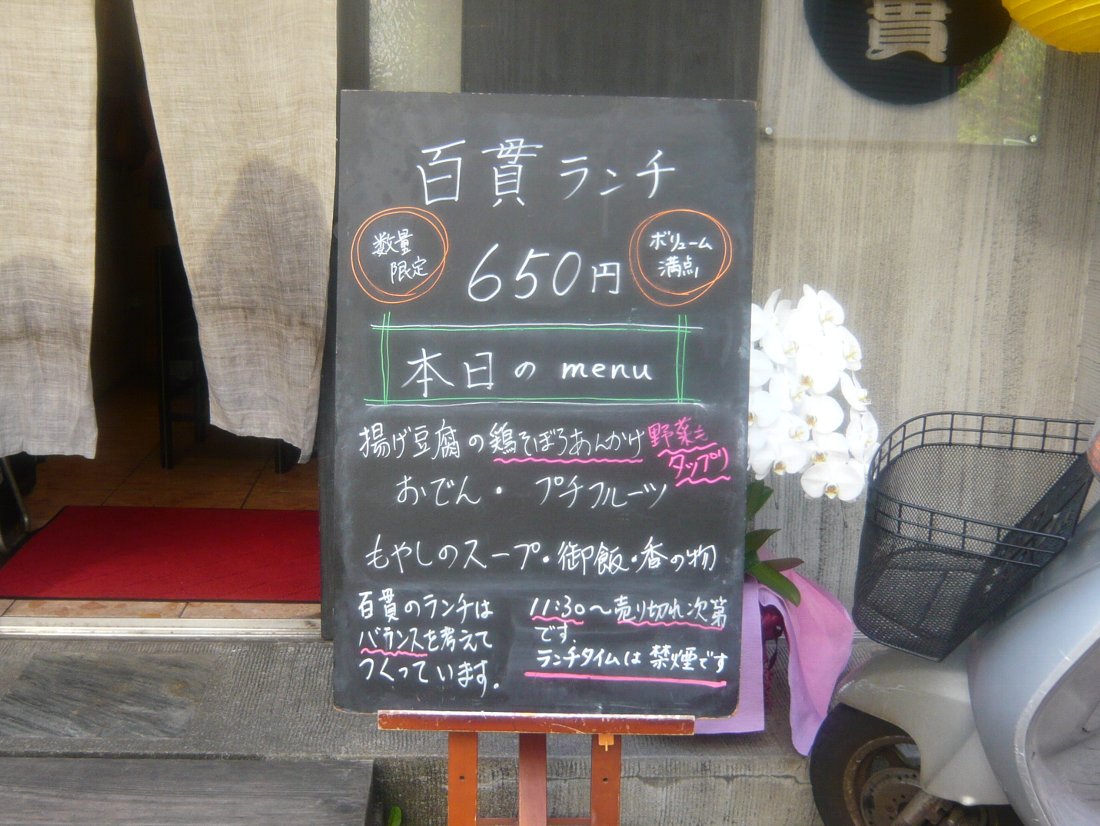 貫
百貫ランチ
数量
限定
650円
ボリューム
満点!
本日の menu
揚げ豆腐の鶏そぼろあんかけ
野菜も
タップリ
おでん・プチフルーツ
もやしのスープ・御飯・香の物
百貫のランチは
バランスを考えて
つくっています.
11:30〜売り切れ次第
です.
ランチタイムは禁煙です